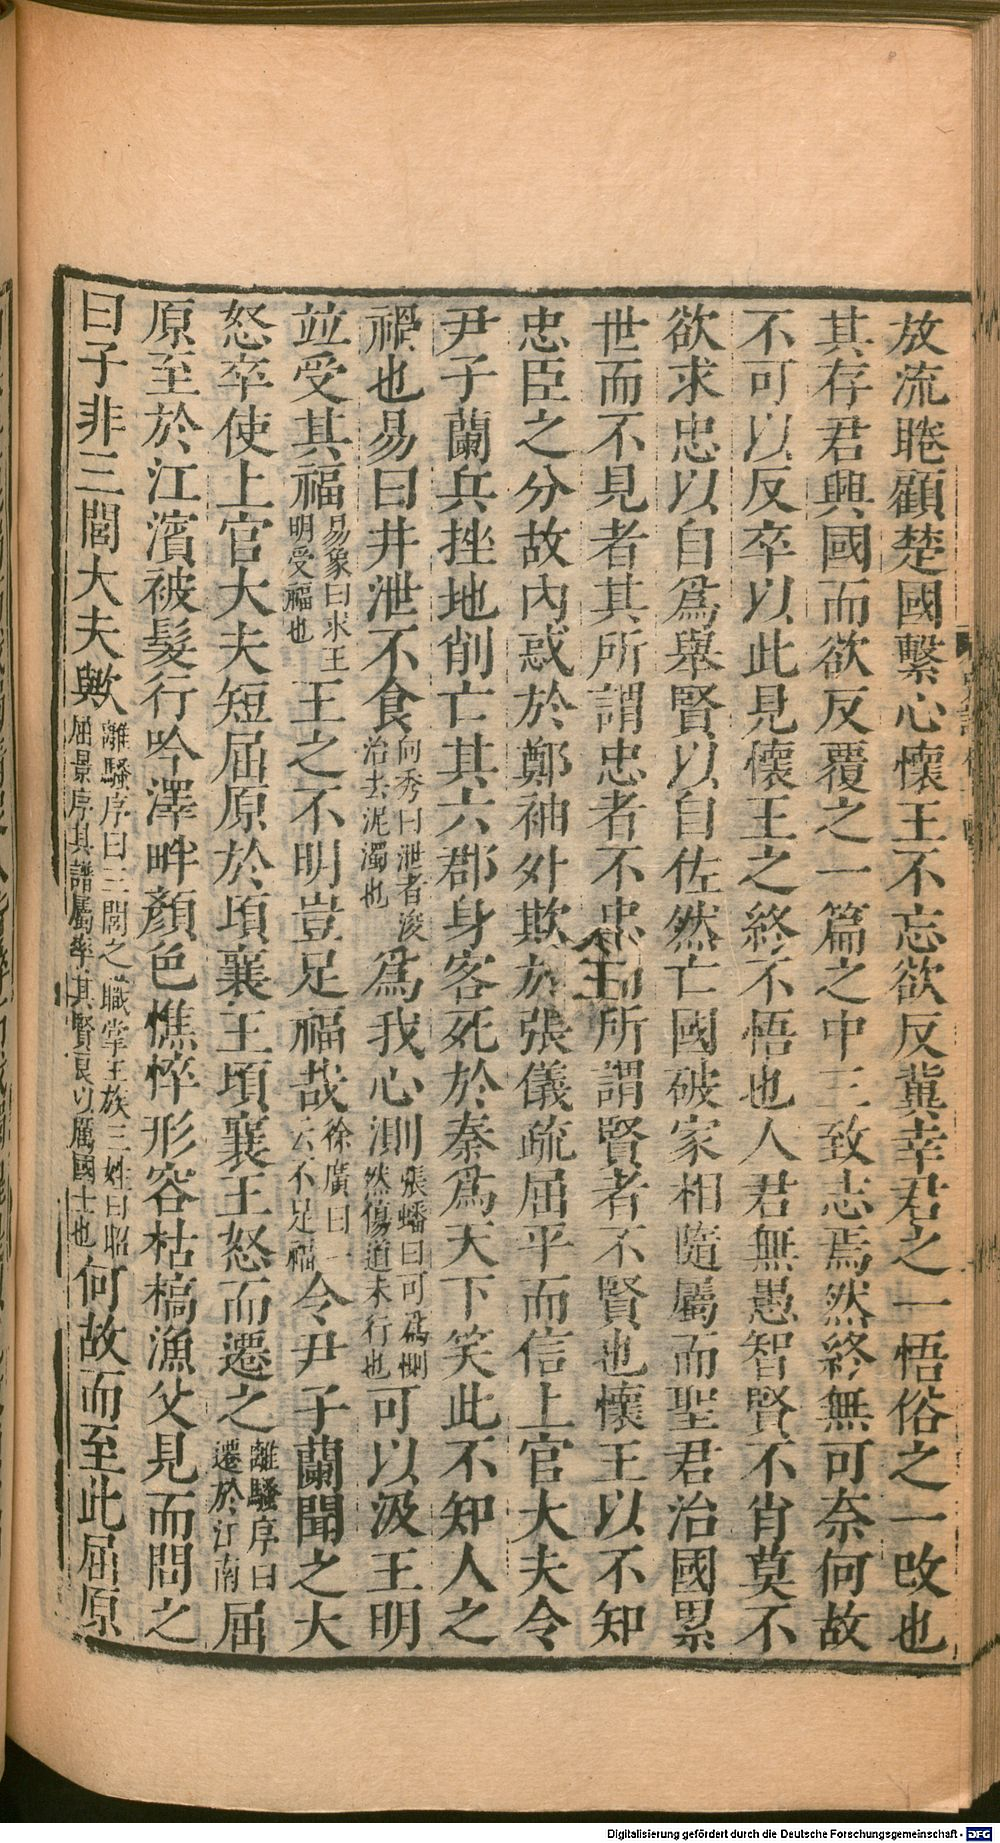 放流睠顧楚國繫心懷王不忘欲反冀幸君之一悟俗之一改也
其存君興國而欲反覆之一篇之中三致志焉然終無可奈何故
不可以反卒以此見懷王之終不悟也人君無愚智賢不肖莫不
欲求忠以自爲舉賢以自佐然亡國破家相隨屬而聖君治國累
世而不見者其所謂忠者不忠而所謂賢者不賢也懷王以不知
忠臣之分故內惑於鄭袖外欺於張儀疏屈平而信上官大夫令
尹子蘭兵挫地削亡其六郡身客死於秦爲天下笑此不知人之
禍也易曰井泄不食向秀曰泄者浚治去泥濁也爲我心測張蟠曰可爲惻然傷道未行也可以汲王明
並受其福易象曰求王明受福也王之不明豈足福哉徐廣曰一云不足福令尹子蘭聞之大
怒卒使上官大夫短屈原於頃襄王頃襄王怒而遷之離騷序曰遷於江南屈
原至於江濱被髮行吟澤畔顏色憔悴形容枯槁漁父見而問之
曰子非三閭大夫歟離騷序曰三閭之職掌王族三姓曰昭屈景序其譜屬率其賢良以厲國士也何故而至此屈原
Digitalisierung gefördert durch die Deutsche Forschungsgemeinschaft - DFG